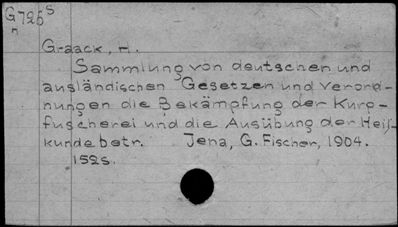 G726s
n
Graack, H.
Sammlung von deutschen und
ausländischen Gesetzen und Verord-
nungen die Bekämpfung der Kurp-
fuscherei und die Ausübung der Heil-
kunde betr. Jena, G. Fischer, 1904.
152s.